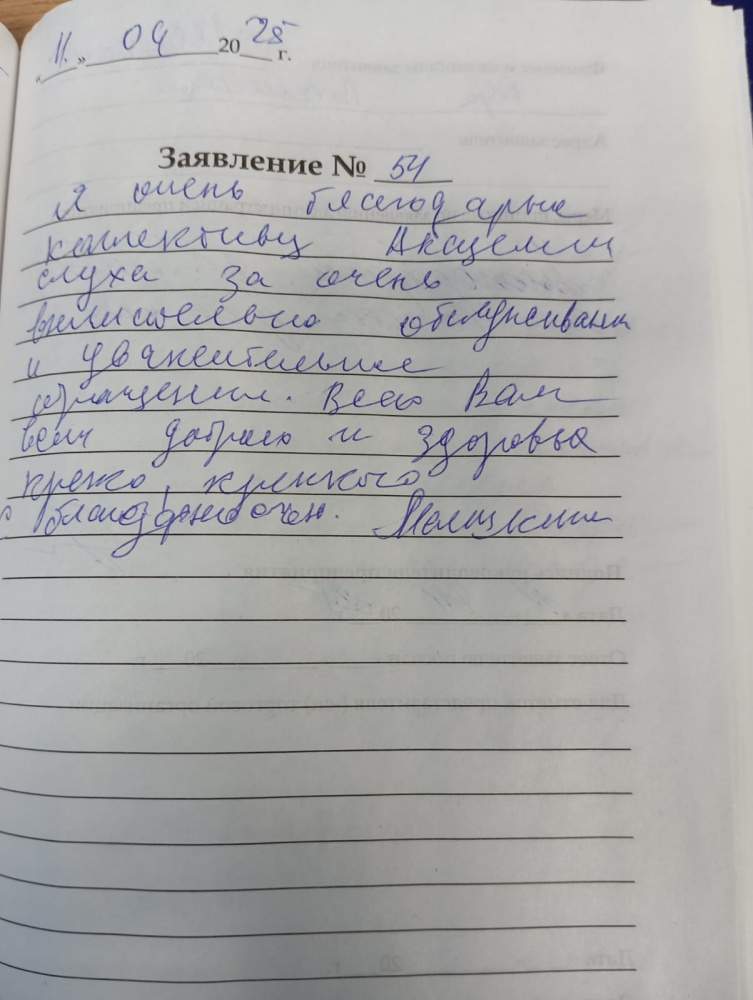 „11.“ 04 2025 г.
Заявление № 54
Я очень благодарна
коллективу Академии
слуха за очень
внимательно обслуживание
и уважительное
обращение. Всего Вам
всем доброго и здоровья
крепко, крепкого
с благодарностью